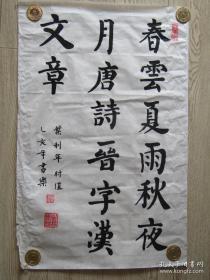 春雲夏雨秋夜
月唐詩晉字漢
文章
乙亥年書樂